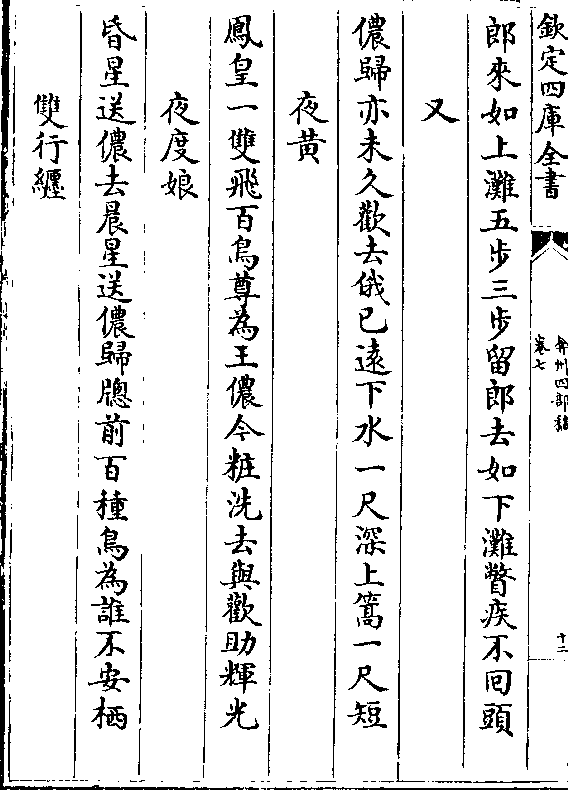 欽定四庫全書
弇州四部稿
卷七
十二
郎來如上灘五步三步留郎去如下灘瞥疾不回頭
又
儂歸亦未久歡去俄已遠下水一尺深上篙一尺短
夜黄
鳳皇一雙飛百鳥尊為王儂今粧洗去與歡助輝光
夜度娘
昏星送儂去晨星送儂歸牕前百種鳥為誰不安栖
雙行纏